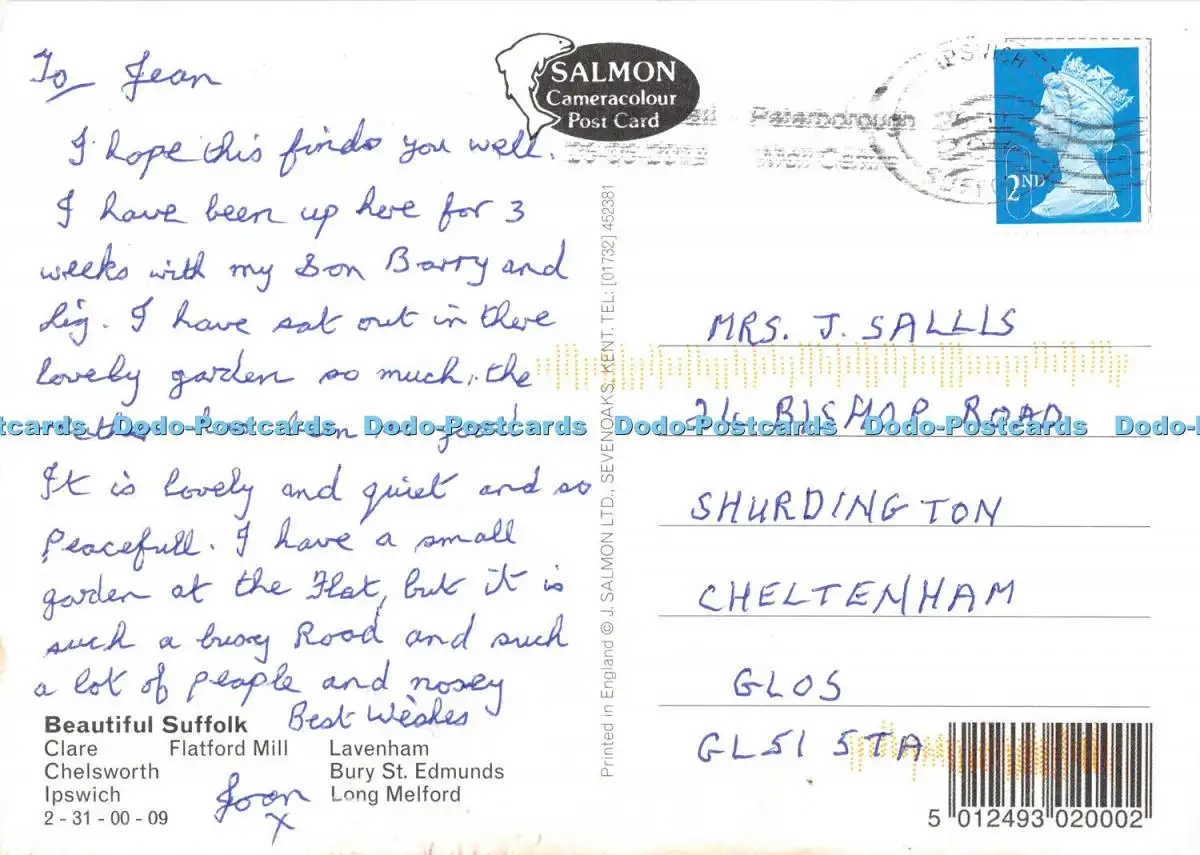 To Jean
I hope this finds you well.
I have been up here for 3
weeks with my Son Barry and
Liz. I have sat out in there
lovely garden so much, the
been so
It is lovely and quiet and so
Peacefull. I have a small
garden at the Flat, but it is
such a busy Road and such
a lot of people and nosey
Best Wishes
Joan
x
Beautiful Suffolk
Clare Flatford Mill Lavenham
Chelsworth Bury St. Edmunds
Ipswich Long Melford
2 - 31 - 00 - 09
SALMON
Cameracolour
Post Card
Printed in England © J. SALMON LTD., SEVENOAKS, KENT. TEL: [01732] 452381
Peterborough
Mail Centre
IPSWICH
SUFFOLK
2ND
MRS. J. SALLIS
24 BISHOP ROAD
SHURDINGTON
CHELTENHAM
GLOS
GL51 5TA
5 012493 020002
Dodo-Postcards Dodo-Postcards Dodo-Postcards Dodo-Postcards